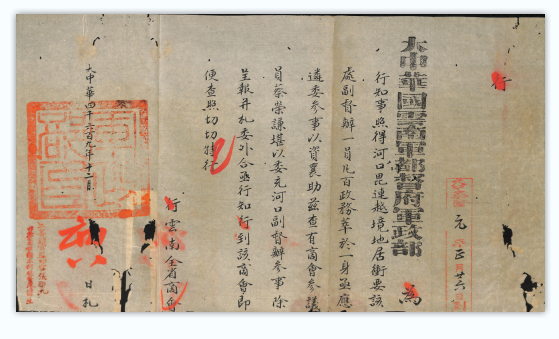 行
大中華國雲南軍都督府軍政部
為
行知事照得河口毘連越境地居衝要該
處副督辦一員凡百政務萃於一身亟應
遴委參事以資襄助茲查有商會參議
員蔡榮謙堪以委充河口副督辦參事除
呈報并札委外合亟行知行到該商會即
便查照切切特行
行雲南全省商會
大中華四千六百九年十二月
日札
元
正月廿六